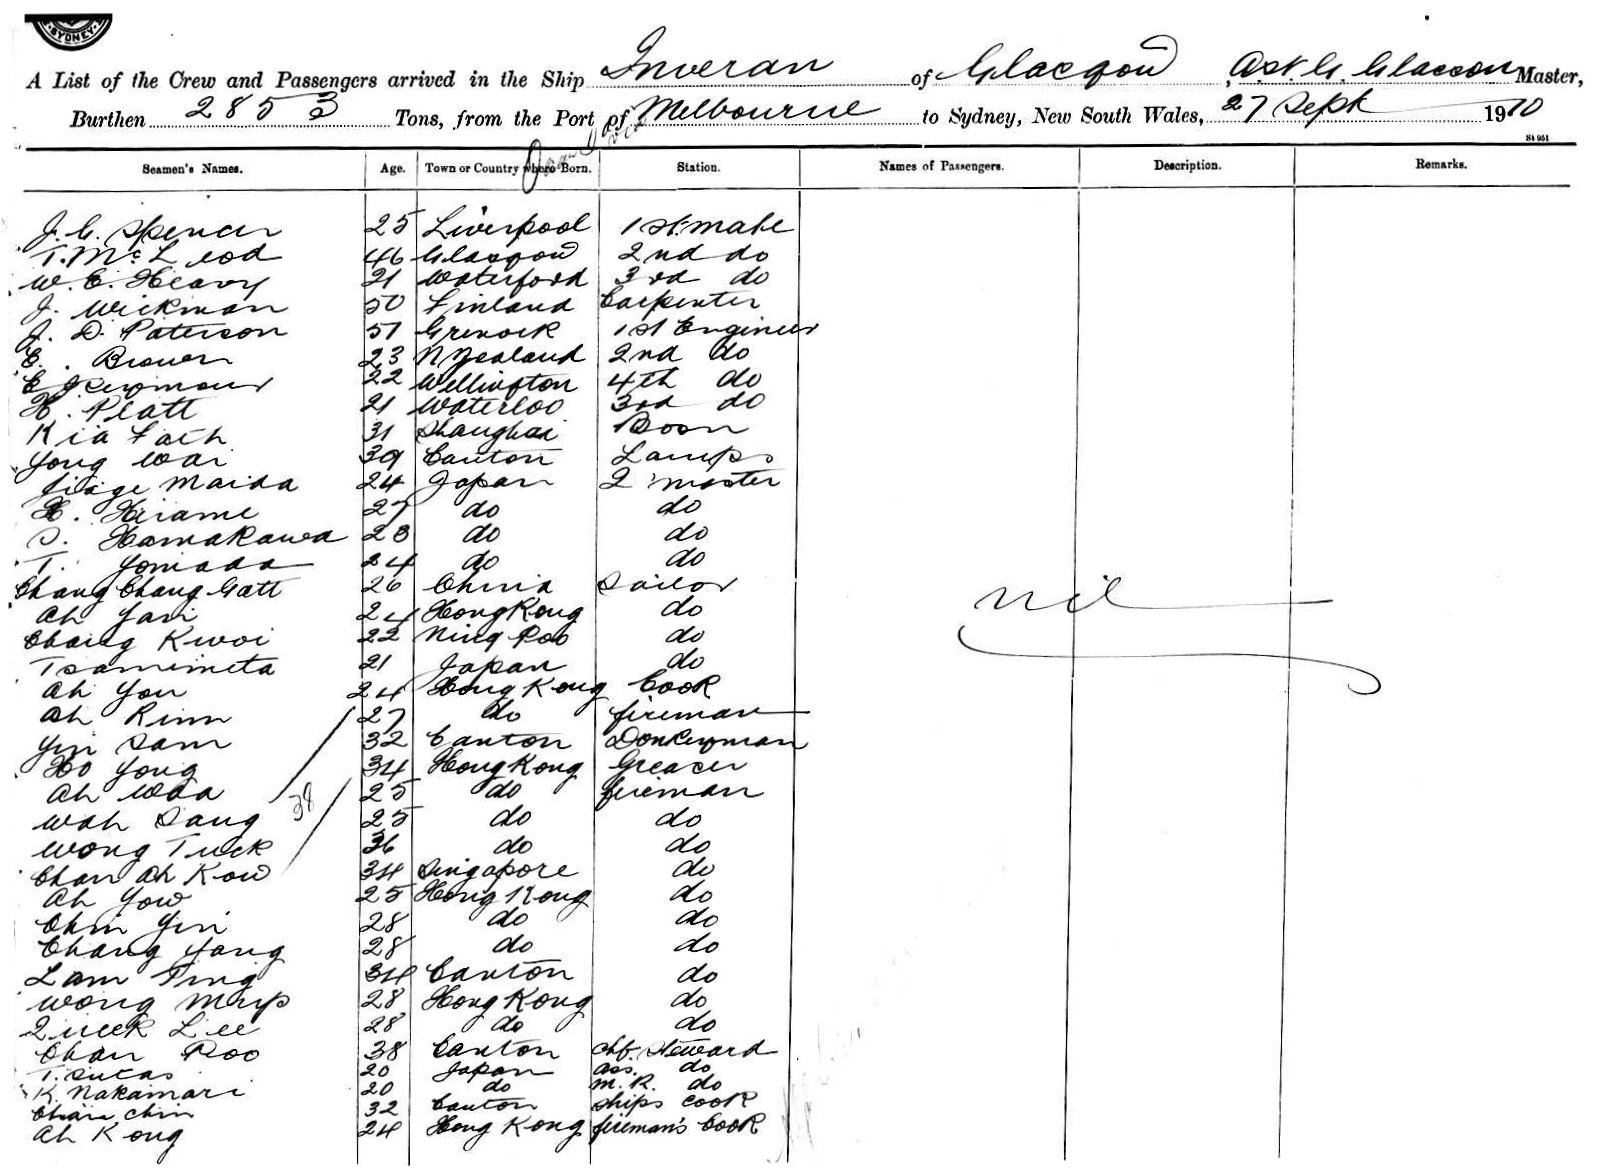 SYDNEY
A List of the Crew and Passengers arrived in the Ship Inveran of Glasgow, G. Glasson Master,
Burthen 2853 Tons, from the Port of Melbourne to Sydney, New South Wales, 27 Sept 1910
Seamen's Names. Age. Town or Country where Born. Station. Names of Passengers. Description. Remarks.
J. G. Spencer 25 Liverpool 1st mate
T. McLeod 46 Glasgow 2nd do
W. E. Heavy 21 Waterford 3rd do
J. Wickman 50 Finland Carpenter
J. D. Paterson 51 Grenock 1st Engineer
E. Brown 23 N Zealand 2nd do
E Seymour 22 Wellington 4th do
H. Platt 21 Waterloo 3rd do
Kia Fach 31 Shanghai Bosn
Yong Wai 39 Canton Lamps
Maida 24 Japan Q master
H. Hirame 27 do do
S. Hamakawa 28 do do
T. Yomada 24 do do
Chang Chang Gatt 26 China Sailor
Ah Yari 24 Hong Kong do
Chang Kwoi 22 Ning Poo do
Tsamimeta 21 Japan do
nil
Ah You 24 Hong Kong Cook
Ah Rinn 27 do fireman
Yin Sam 32 Canton Donkeyman
Ho Yong 34 Hong Kong Greaser
Ah Waa 25 do fireman
38
Wah Sang 25 do do
Wong Tuck 36 do do
Chan Ah Kow 34 Singapore do
Ah Yow 25 Hong Kong do
Chin Yin 28 do do
Chang Yang 28 do do
Lam Ting 34 Canton do
Wong 28 Hong Kong do
Queek Lee 28 do do
Chan Poo 38 Canton chf. Steward
T. Sutas 20 Japan ass. do
K. Nakamari 20 do m. R. do
Chan Chin 32 Canton ships cook
Ah Kong 24 Hong Kong fireman's Cook